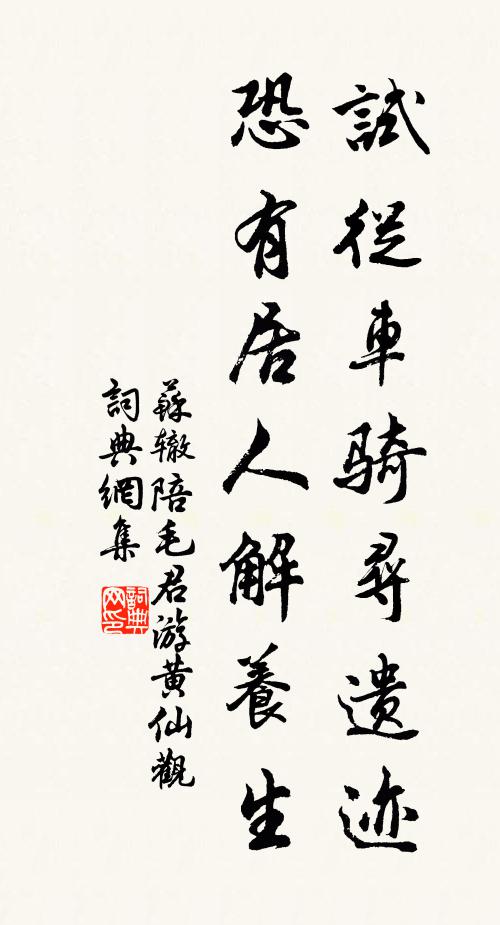 試從車騎尋遺迹
恐有居人解養生
蘇轍陪毛君游黃仙觀
詞典網集
詞典网印